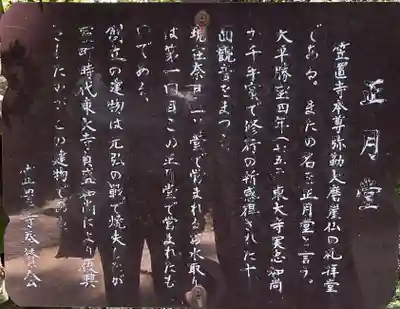 正月堂
笠置寺本尊弥勒大磨崖仏の礼拝堂
である。またの名を正月堂と言う。
天平勝宝四年(七五二)東大寺実忠和尚
が千手窟で修行の折感得された十一
面観音をまつる
現在奈良二月堂で営まれるお水取り
は第一回目この正月堂で営まれたも
のである。
創建の建物は元弘の戦で焼失したが
室町時代東大寺貞盛和尚により復興
されたのがこの建物である
笠置寺